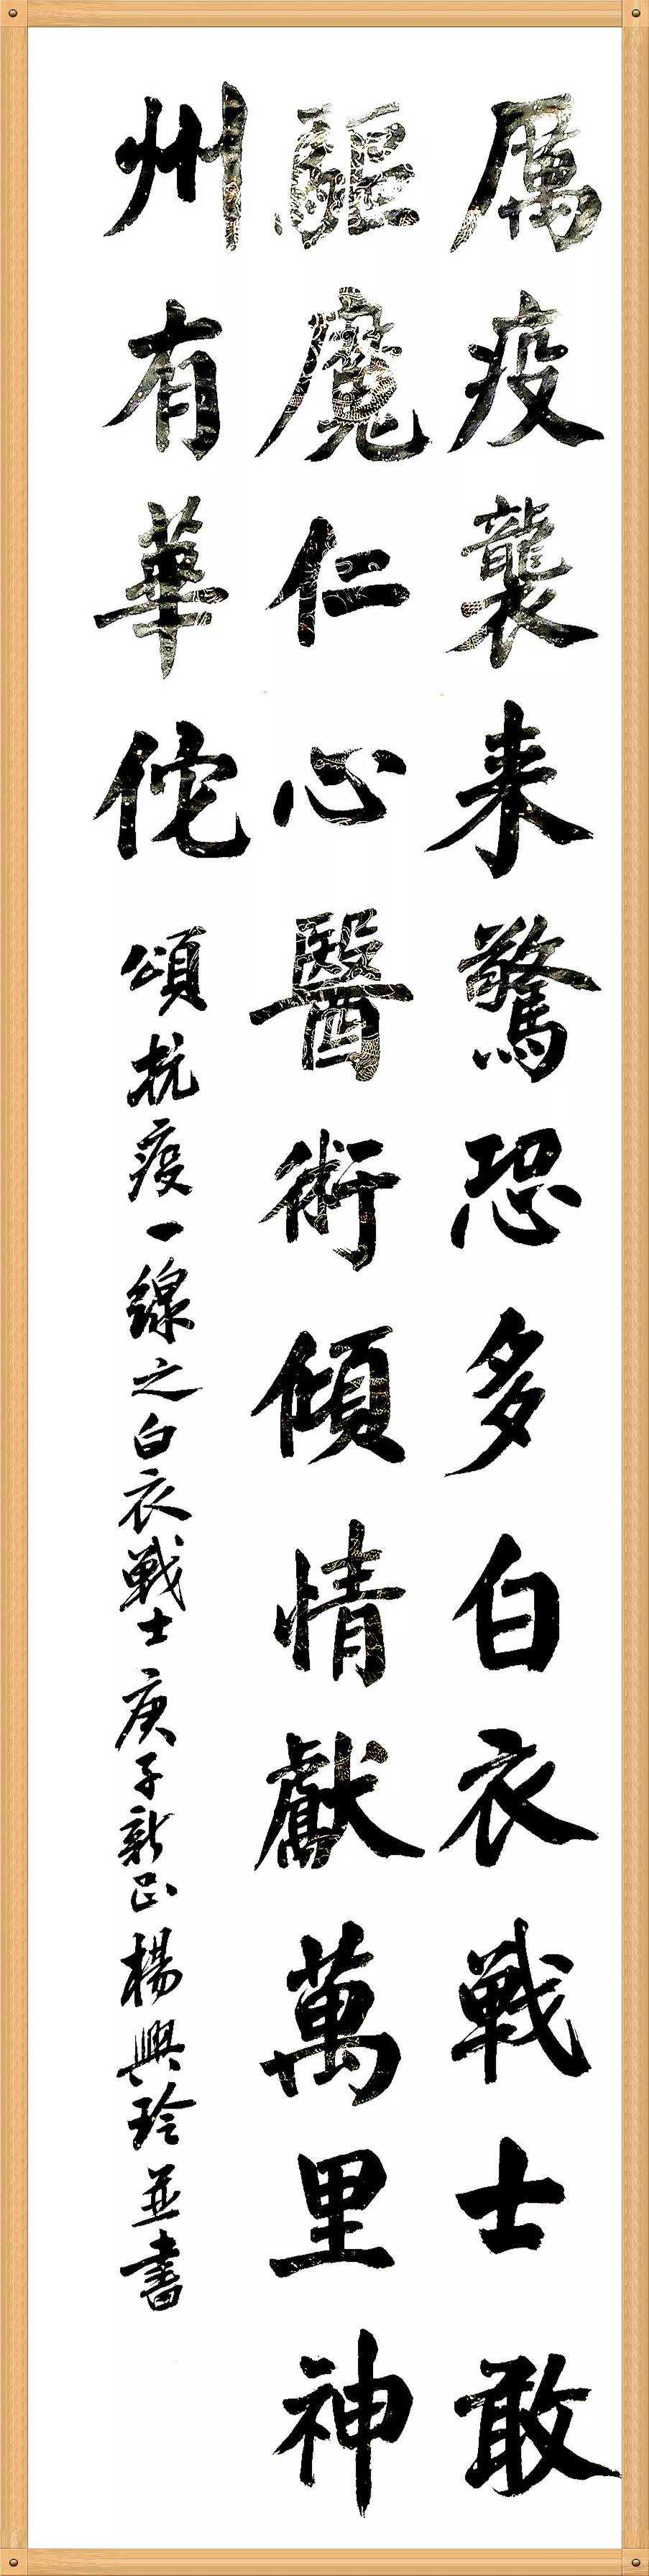 厲疫襲来驚恐多白衣戦士敢
驅魔仁心醫術傾情獻萬里神
州有華佗
頌抗疫一線之白衣戦士庚子新正楊興玲並書